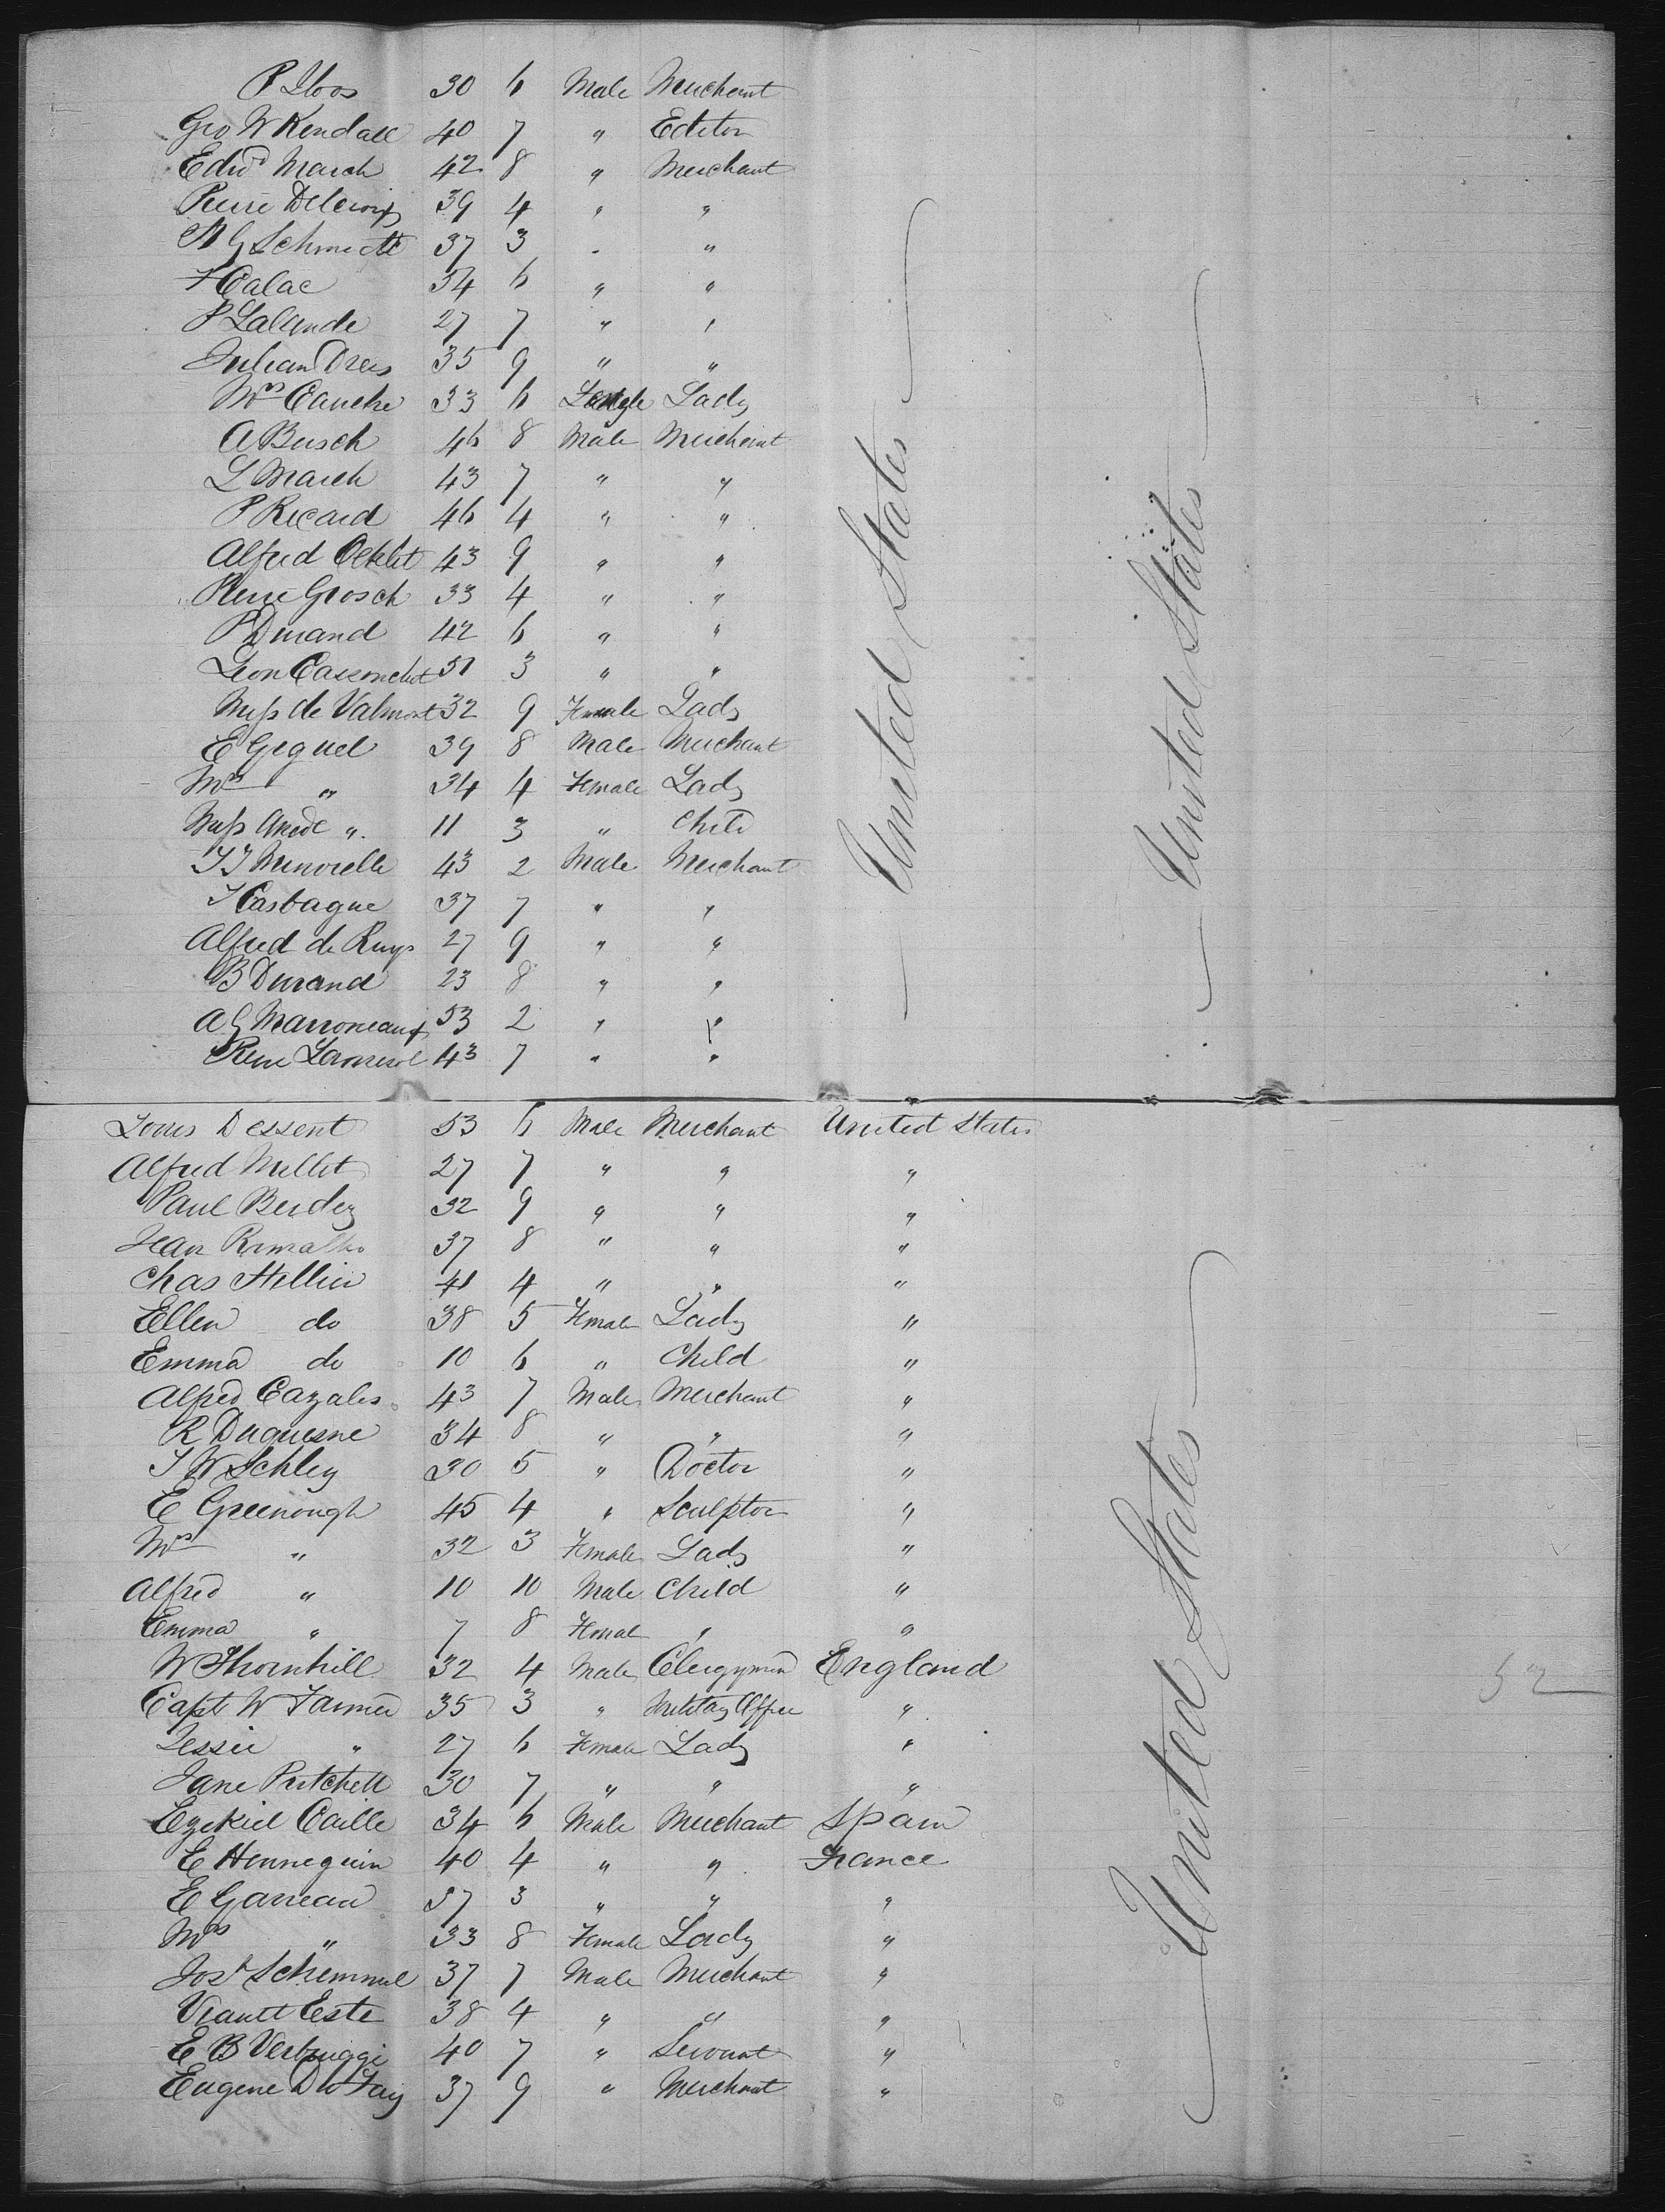 P Iloos 30 6 Male Merchant
Geo W Kendall 40 7 " Editor
Edwd March 42 8 " Merchant
Pierre Delcroix 39 4 " "
A G Schmidt 37 3 " "
F Calac 34 6 " "
P Lalande 27 7 " "
Julian Drees 35 9 " "
Mrs Cauche 33 6 Lady
A Busch 46 8 Male Merchant
L March 43 7 " "
P Ricard 46 4 " "
Alfred 43 9 " "
Pierre Grosch 33 4 " "
P Durand 42 6 " "
Leon 51 3 " "
Miss de Valmont 32 9 Female Lady
E Giquel 39 8 Male Merchant
Mrs " 34 4 Female Lady
Miss " 11 3 " Child
J J Minorelle 43 2 Male Merchant
J Casbague 37 7 " "
Alfred de Ruys 27 9 " "
B Durand 23 8 " "
A G Marroneaux 53 2 " "
43 7 " "
United States
United States
Louis Dessent 53 6 Male Merchant United States
Alfred Millet 27 7 " " "
Paul Berdez 32 9 " " "
Jean Ramalho 37 8 " " "
Chas Hellier 41 4 " " "
Ellen do 38 5 Female Lady "
Emma do 10 6 " Child "
Alfred Cazales 43 7 Male Merchant "
R Duquesne 34 8 " " "
J W Schley 30 5 " Doctor "
E Greenough 45 4 " Sculptor "
Mrs " 32 3 Female Lady "
Alfred " 10 10 Male Child "
Emma " 7 8 Femal " "
W Thornhill 32 4 Male Clergyman England
Capt W Farmer 35 3 " Military Officer "
Jessie " 27 6 Female Lady "
Jane Pritchett 30 7 " " "
Ezekiel Caille 34 6 Male Merchant Spain
E Hennequin 40 4 " " France
E Garreau 37 3 " " "
Mrs " 33 8 Female Lady "
Josh Schemmel 37 7 Male Merchant "
Este 38 4 " " "
E B Verbruggi 40 7 " Servant "
Eugene Du Fay 37 9 " Merchant "
United States
52